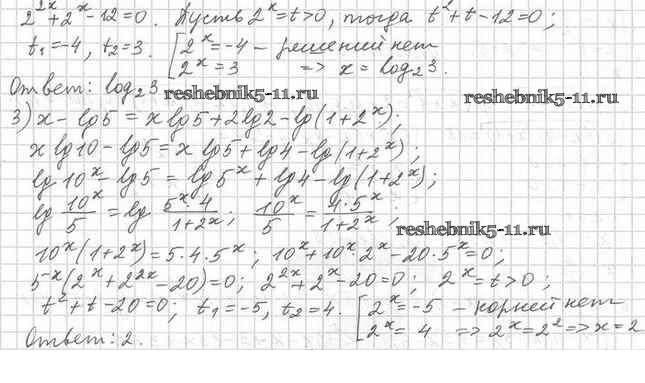 2^{2x}+2^x-12=0. Пусть 2^x=t>0, тогда t^2+t-12=0;
t_1=-4, t_2=3. [2^x=-4 – решений нет
2^x=3 => x=log_2 3.
Ответ: log_2 3
reshebnik5-11.ru
reshebnik5-11.ru
3) x-lg5=x lg5+2lg2-lg(1+2^x);
x lg10-lg5=x lg5+lg4-lg(1+2^x);
lg10^x-lg5=lg5^x+lg4-lg(1+2^x);
lg 10^x/5 = lg 5^x·4/1+2^x; 10^x/5 = 4·5^x/1+2^x;
reshebnik5-11.ru
10^x(1+2^x)=5·4·5^x; 10^x+10^x·2^x-20·5^x=0;
5^{-x}(2^x+2^{2x}-20)=0; 2^{2x}+2^x-20=0; 2^x=t>0;
t^2+t-20=0; t_1=-5, t_2=4. [2^x=-5 – корней нет
2^x=4 => 2^x=2^2 => x=2
Ответ: 2.